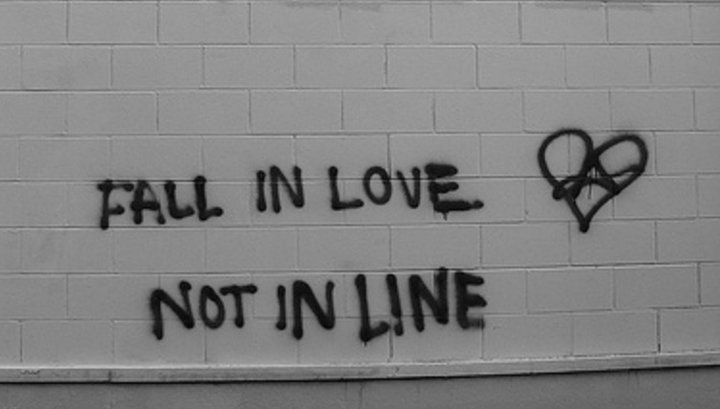 FALL IN LOVE
NOT IN LINE